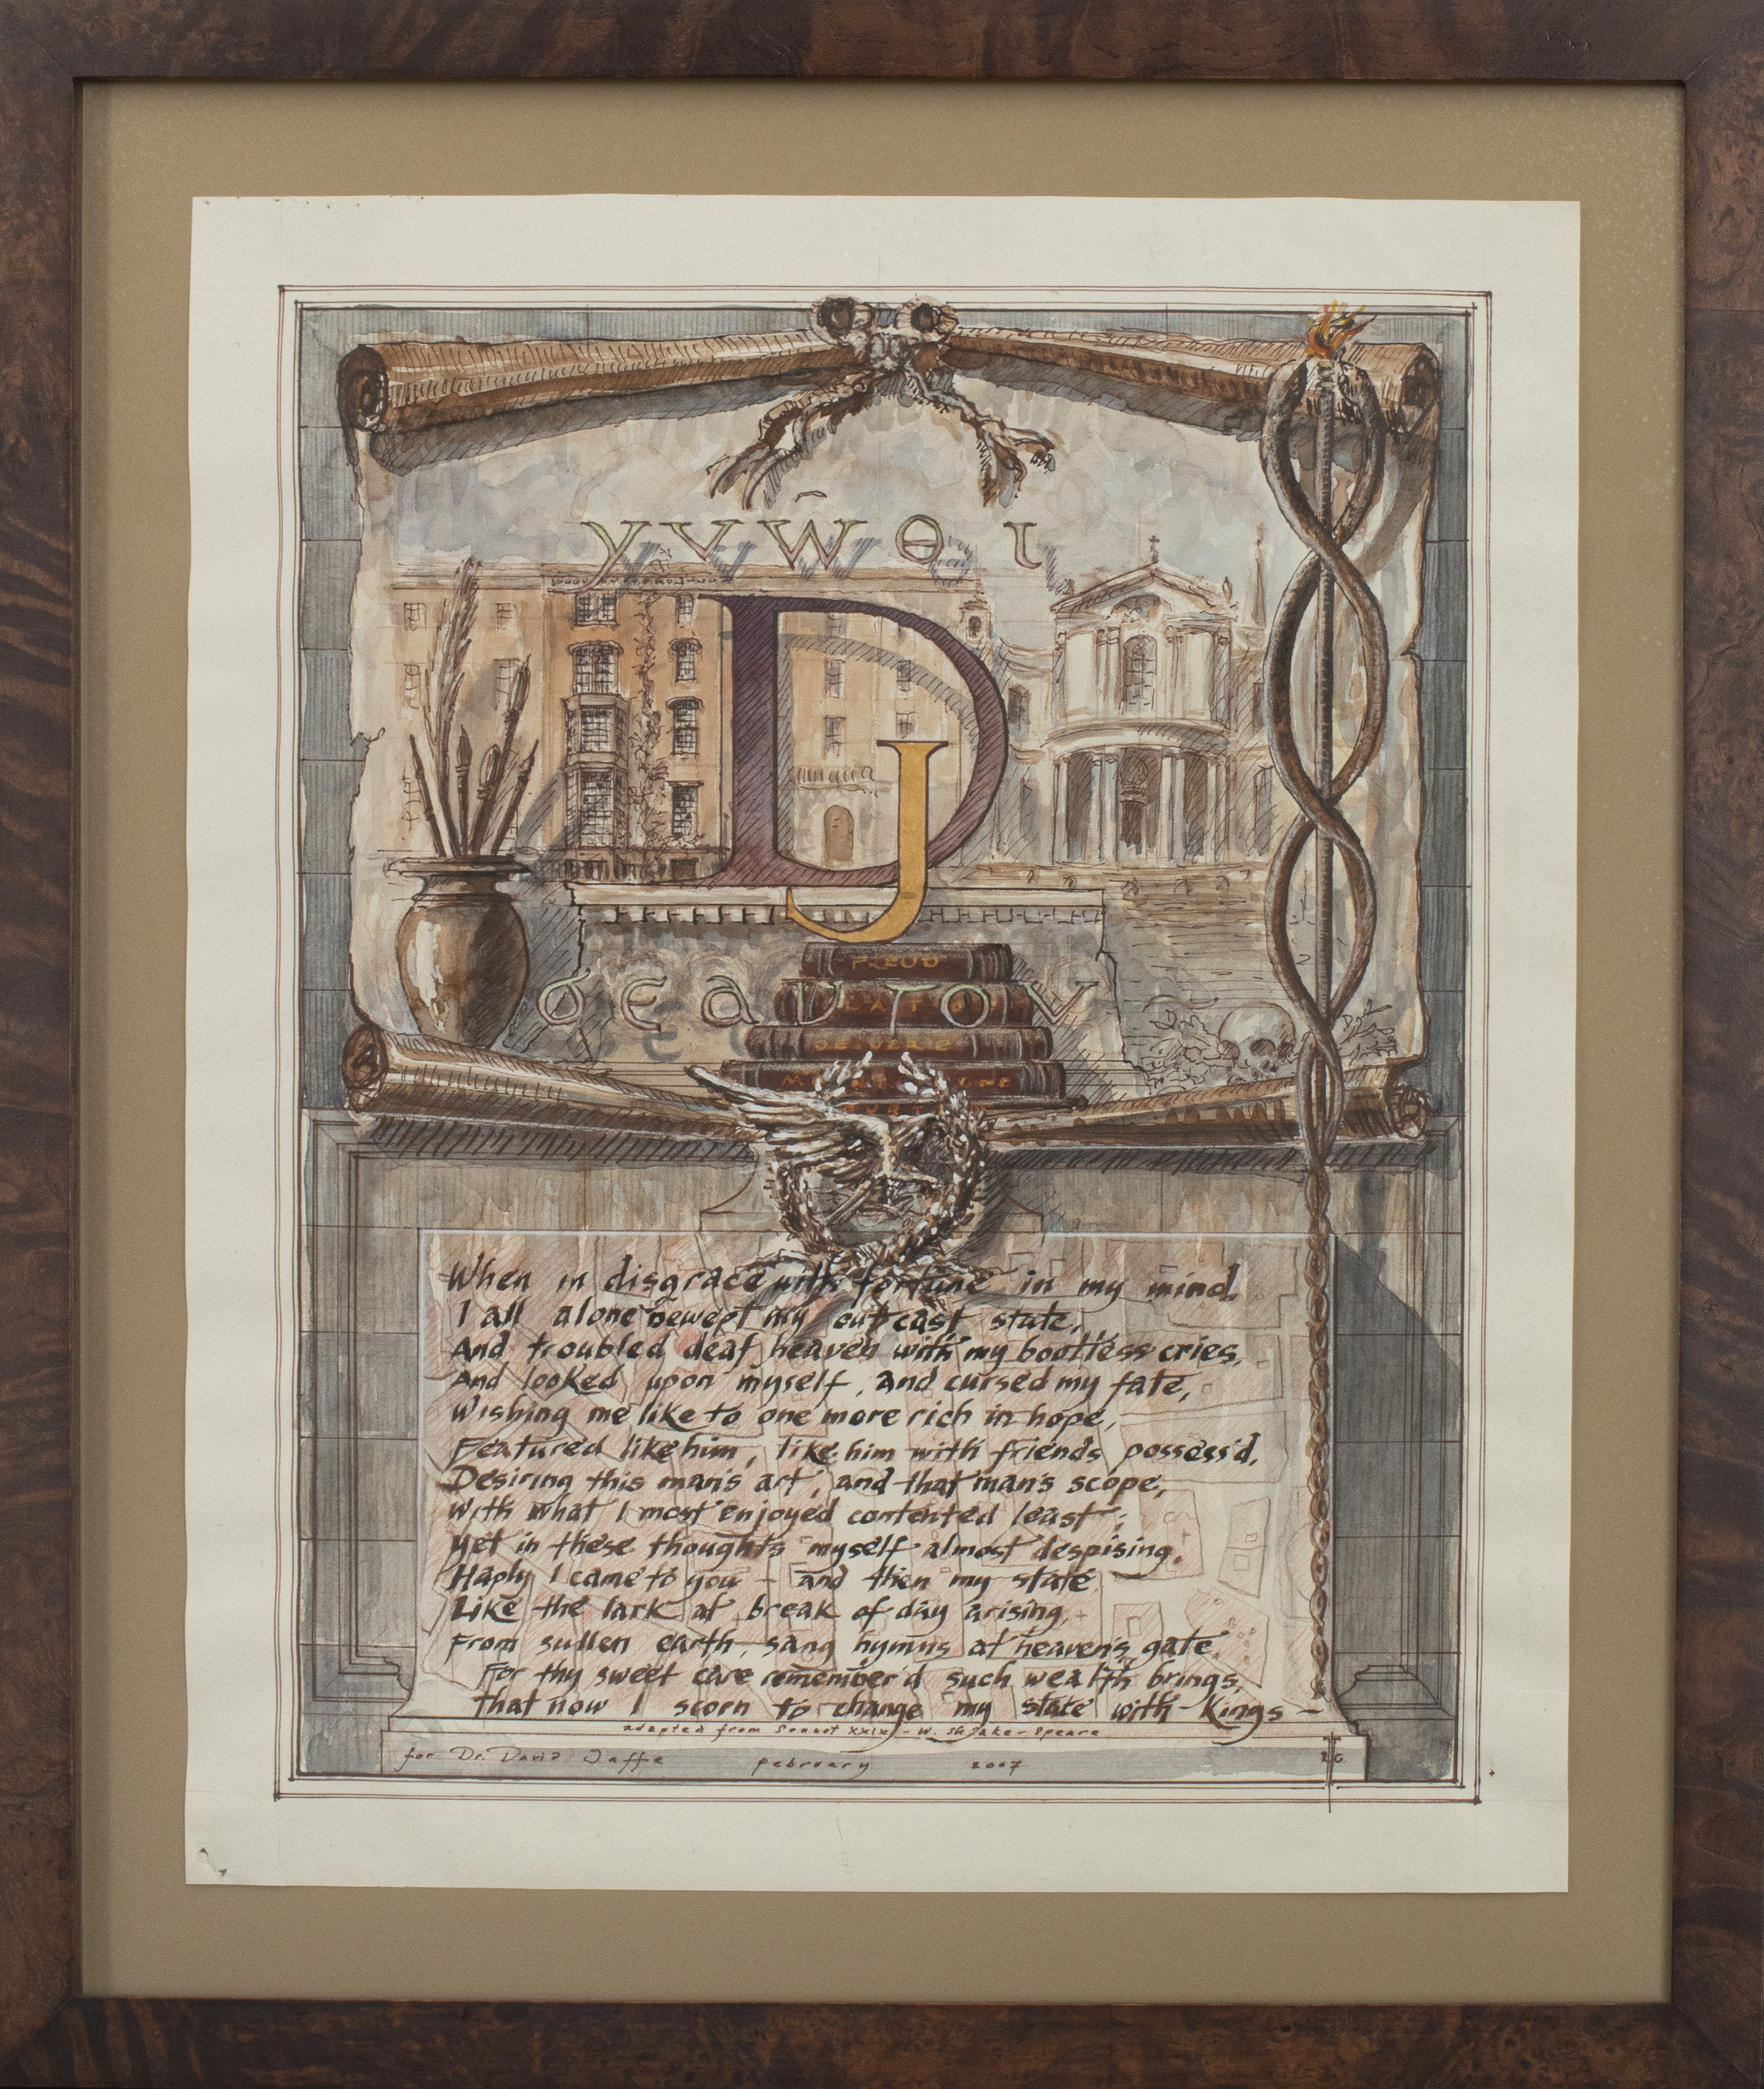 γνῶθι
D
J
FREUD
PLATO
σεαυτον
DE VERE
When in disgrace with fortune in my mind,
I all alone bewept my outcast state,
And troubled deaf heaven with my bootless cries,
And looked upon myself, and cursed my fate,
Wishing me like to one more rich in hope,
Featured like him, like him with friends possess'd,
Desiring this man's art, and that man's scope,
With what I most enjoyed contented least;
Yet in these thoughts myself almost despising,
Haply I came to you - and then my state
Like the lark at break of day arising,
From sullen earth, sang hymns at heaven's gate.
For thy sweet care remember'd such wealth brings,
that now I scorn to change my state with Kings —
adapted from Sonnet XXIX - W. Shaker-Speare
for Dr. David Jaffe february 2007